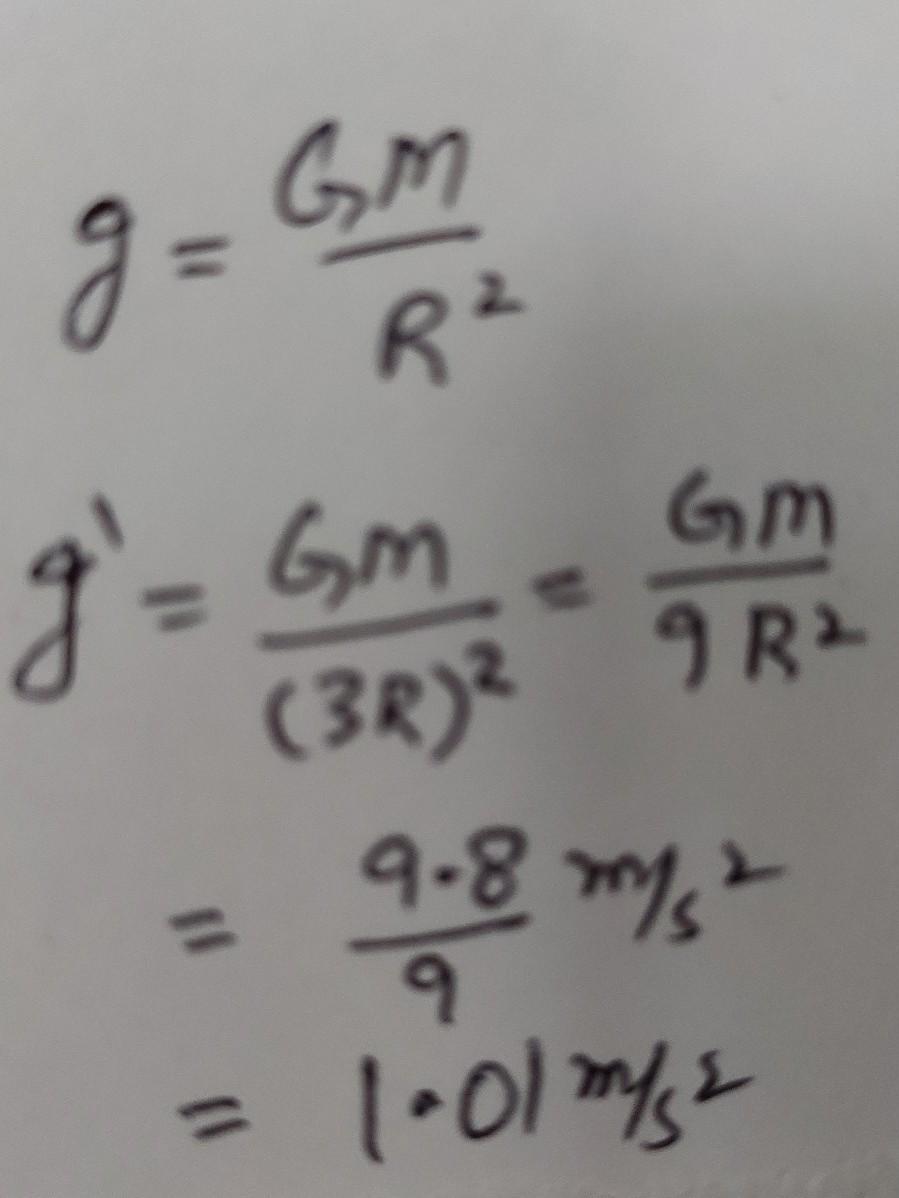 g = GM/R²
g' = GM/(3R)² = GM/9R²
= 9.8/9 m/s²
= 1.01 m/s²